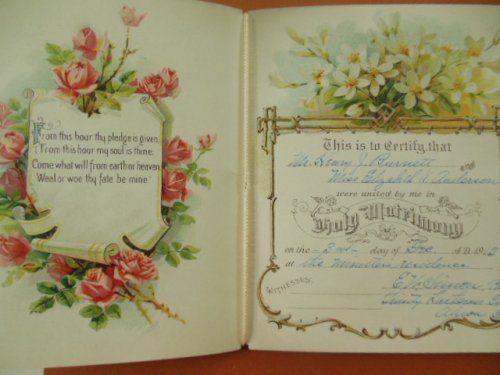 From this hour thy pledge is given,
From this hour my soul is thine;
Come what will from earth or heaven
Weal or woe thy fate be mine."
This is to Certify, that
Mr. Henry J. Burnett
and
Miss Elizabeth Anderson
were united by me in
Holy Matrimony
on the 3rd day of Dec. A.D. 19
at the residence
WITNESSES: